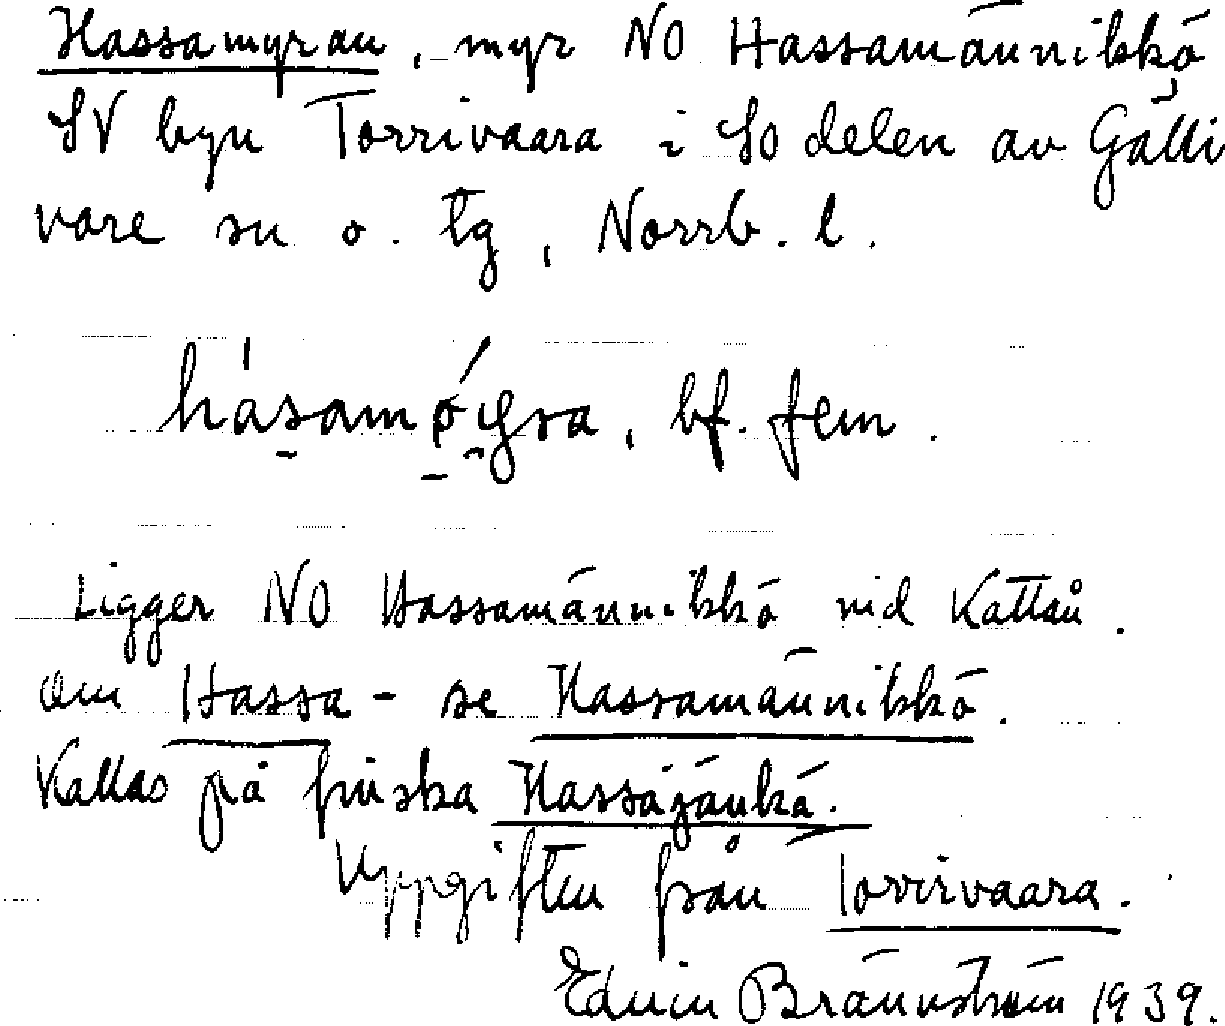 Hassamyran, myr NO Hassamännikkö
SV byn Torrivaara i SO delen av Gälli
vare sn o. tg, Norrb. l.
bf. fem.
Ligger NO Hassamännikkö vid Kattån.
Om Hassa- se Hassamännikkö.
Kallas på finska Hassajänkä.
Uppgiften från Torrivaara.
Edvin Brännström 1939.